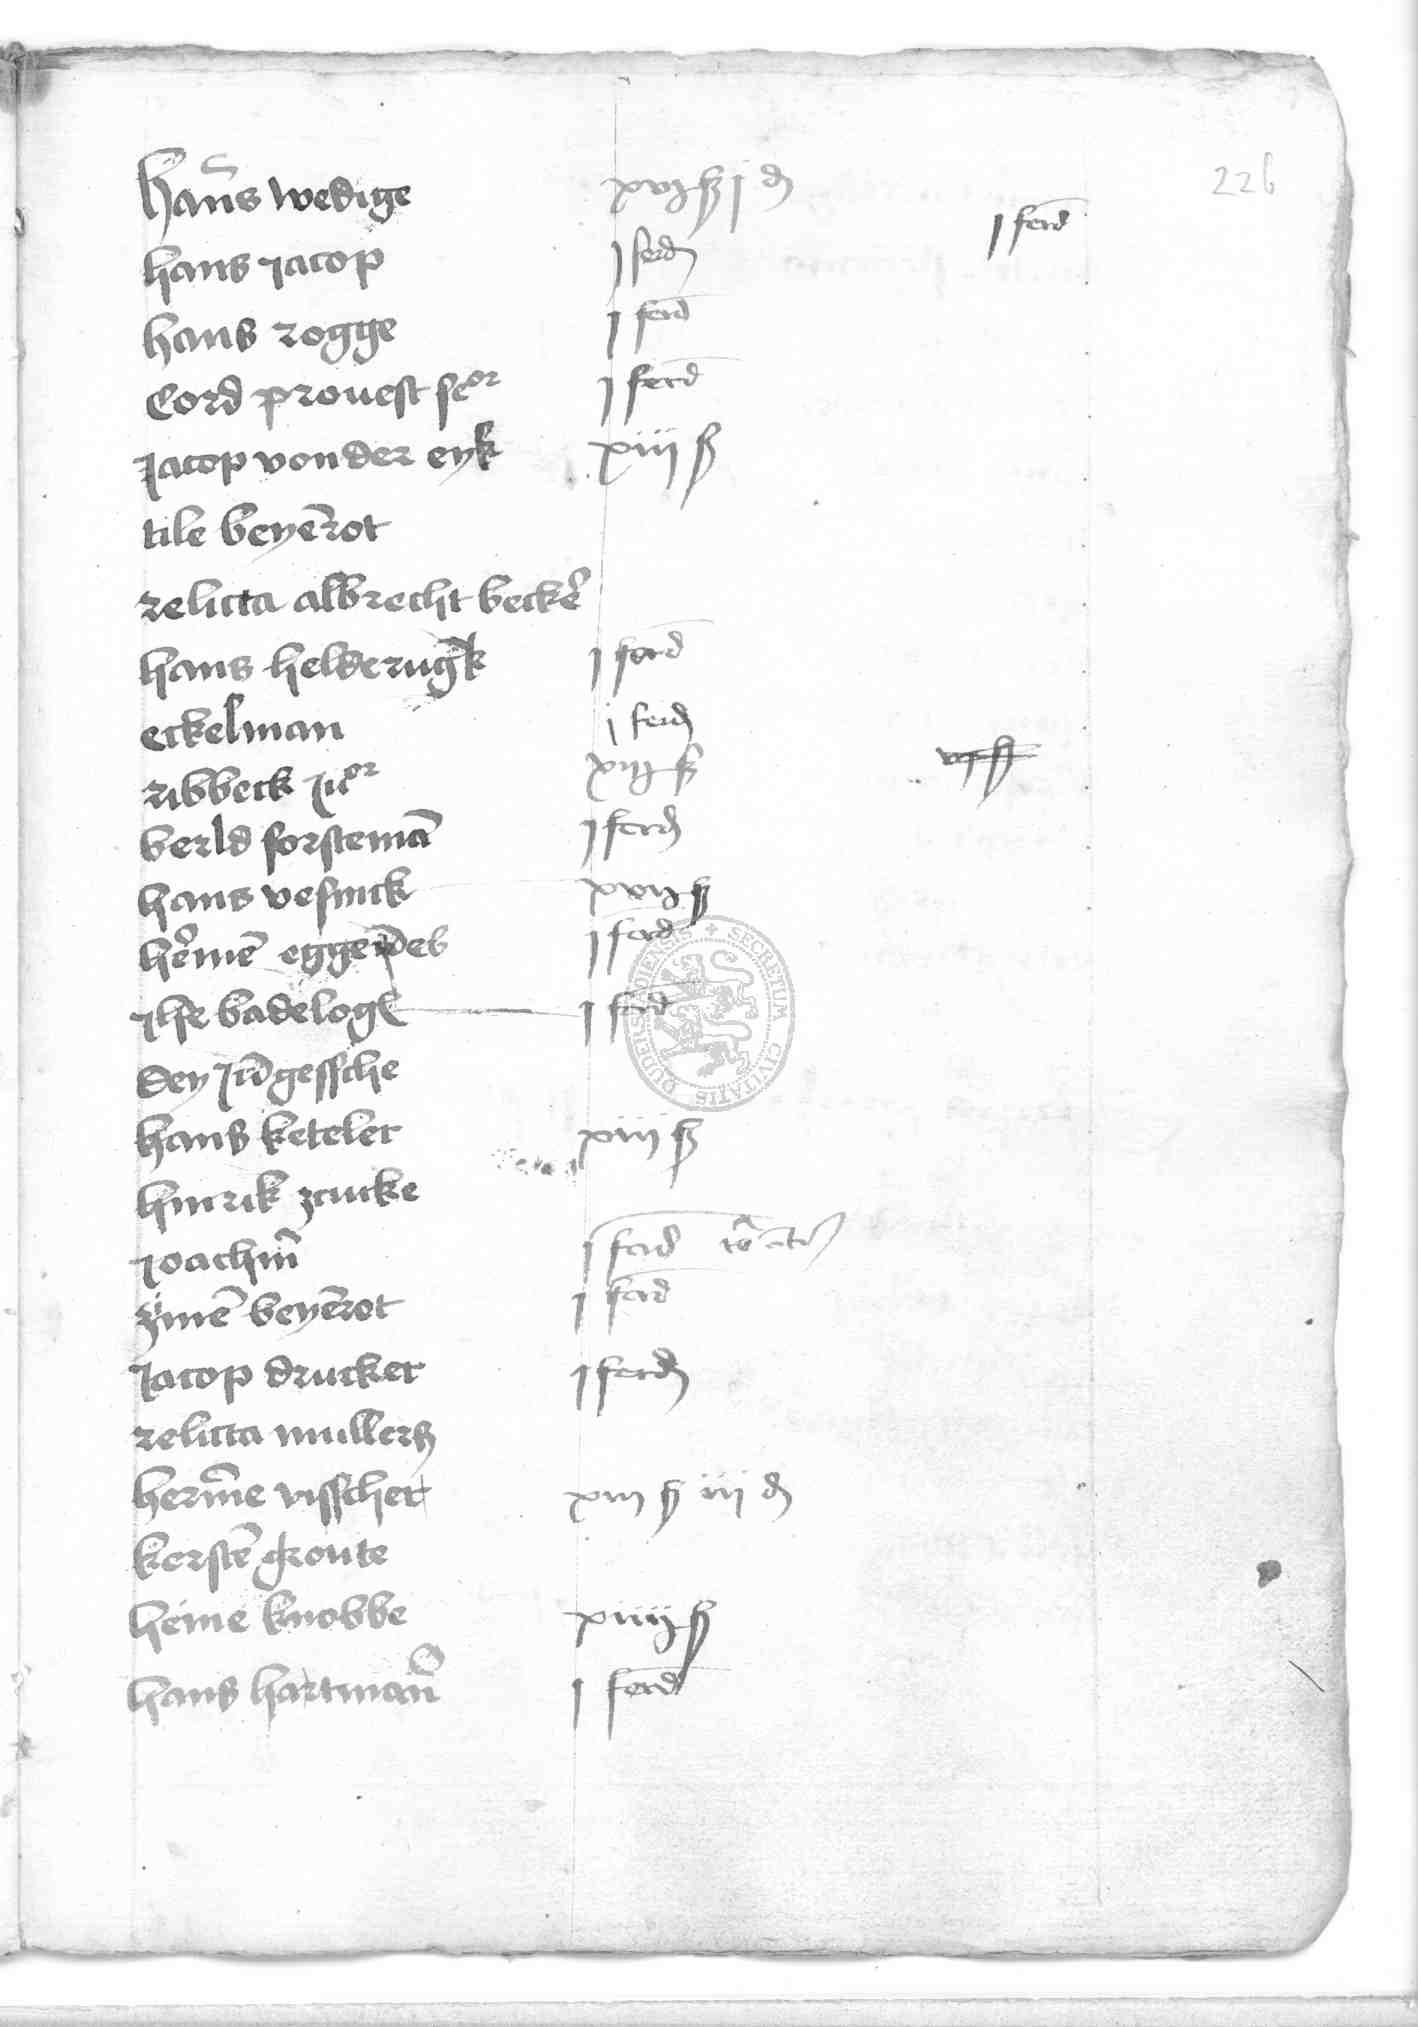 226
Hans wedige xvij ß j d
j ferd
hans jacop j ferd
hans rogge j ferd
Cord prouest seor j ferd
Jacop von der eyk xiiij ß
tile beyerot
relicta albrecht becker
hans helderugk j ferd
eckelman j ferd
ribbeck jcor xiij ß
berld forsteman j ferd
hans vesinck xviij ß
hermen j ferd
ilse badelogen j ferd
dey jungessche
hans keteler xiiij ß
hinrik zcucke
joachim j ferd
zimen beyerot j ferd
Jacop drucker j ferd
relicta mullers
hermen visscher xiij ß iij d
kersten groute
heine knobbe xiiij ß
hans hartman j ferd
SECRETUM CIVITATIS DUDERSTADIENSIS